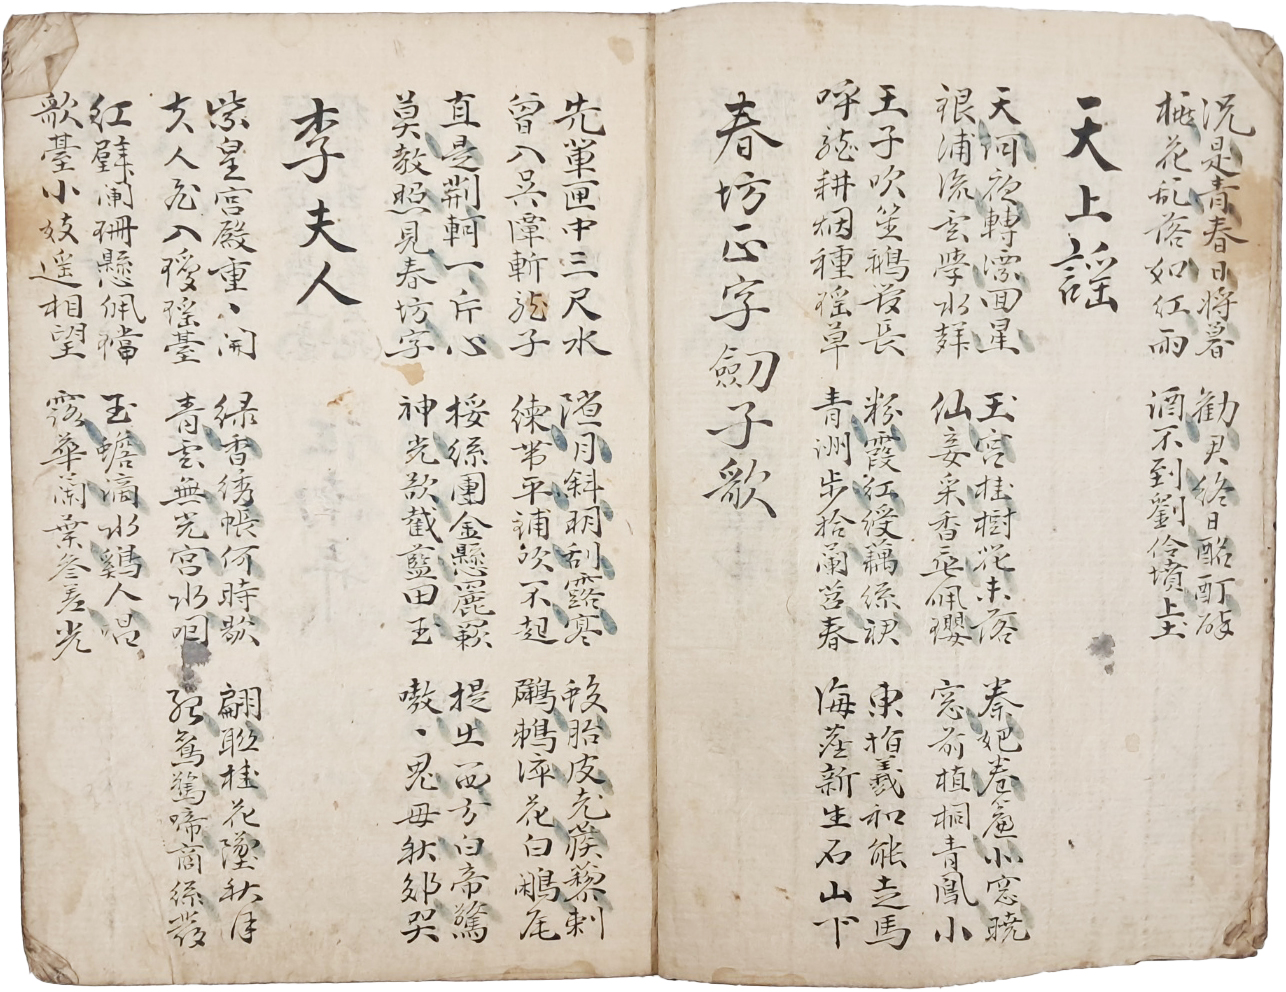 況是青春日將暮
桃花乱落如紅雨
勸君終日酩酊酔
酒不到劉伶墳上土
天上謡
天河夜轉漂囬星
銀浦流雲學水聲
玉宮桂樹花未落
仙妾采香垂佩瓔
秦妃卷簾小窓曉
窓前植桐青鳳小
王子吹笙鵝管長
呼龍耕烟種瑶草
粉霞紅綬藕絲裙
青洲步拾蘭苕春
東指羲和能走馬
海塵新生石山下
春坊正字劒子歌
先輩匣中三尺水
曾入吴潭斬龍子
隙月斜明刮露寒
練帶平鋪吹不起
蛟胎皮老蒺藜刺
鸊鵜淬花白鷴尾
直是荊軻一片心
莫教照見春坊字
挼絲團金懸麗簌
神光欲截藍田玉
提出西方白帝驚
嗷〻鬼母秋郊哭
李夫人
紫皇宮殿重〻開
夫人飛入瓊瑶臺
緑香綉帳何時歇
青雲無光宮水咽
翩聯桂花墜秋月
孤鴛驚啼商絲發
紅壁闌珊懸佩璫
歌臺小妓遥相望
玉蟾滴水鷄人唱
露華蘭葉參差光